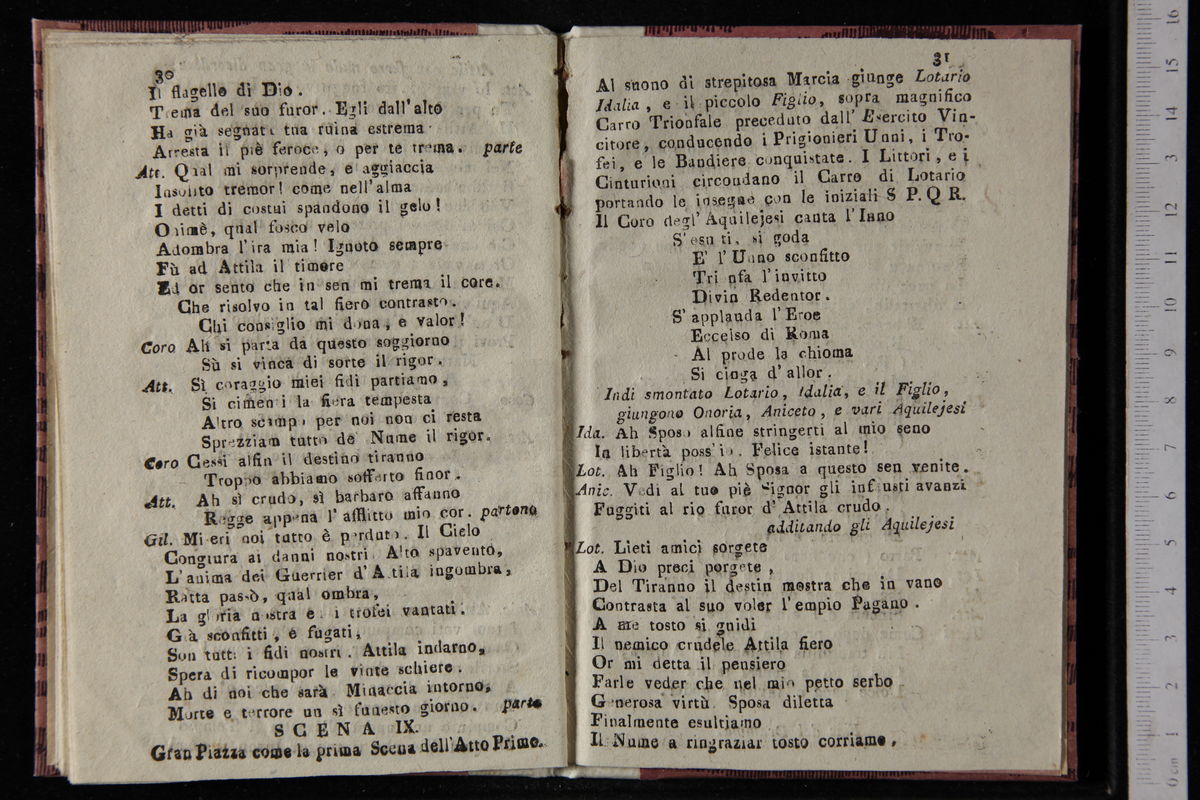 30
Il flagello di Dio.
Trema del suo furor. Egli dall'alto
Ha già segnata tua ruina estrema
Arresta il piè feroce, o per te trema. parte
Att. Qual mi sorprende, e aggiaccia
Insolito tremor! come nell'alma
I detti di costui spandono il gelo!
Oimè, qual fosco velo
Adombra l'ira mia! Ignoto sempre
Fù ad Attila il timore
Ed or sento che in sen mi trema il core.
Che risolvo in tal fiero contrasto.
Chi consiglio mi dona, e valor!
Coro Ah si parta da questo soggiorno
Sù si vinca di sorte il rigor.
Att. Sì coraggio miei fidi partiamo,
Si cimenti la fiera tempesta
Altro scampo per noi non ci resta
Sprezziam tutto de Nume il rigor.
Coro Cessi alfin il destino tiranno
Troppo abbiamo sofferto finor.
Att. Ah sì crudo, sì barbaro affanno
Regge appena l'afflitto mio cor. partono
Gil. Miseri noi tutto è perduto. Il Cielo
Congiura ai danni nostri. Alto spavento,
L'anima dei Guerrier d'Attila ingombra,
Ratta passò, qual ombra,
La gloria nostra e i trofei vantati.
Già sconfitti, e fugati,
Son tutti i fidi nostri. Attila indarno,
Spera di ricompor le vinte schiere.
Ah di noi che sarà Minaccia intorno,
Morte e terrore un sì funesto giorno. parte
SCENA IX.
Gran Piazza come la prima Scena dell'Atto Primo.
31
Al suono di strepitosa Marcia giunge Lotario
Idalia, e il piccolo Figlio, sopra magnifico
Carro Trionfale preceduto dall'Esercito Vin-
citore, conducendo i Prigionieri Unni, i Tro-
fei, e le Bandiere conquistate. I Littori, e i
Cinturioni circondano il Carro di Lotario
portando le insegne con le iniziali S P. Q R.
Il Coro degl'Aquilejesi canta l'Inno
S'esulti, si goda
E' l'Unno sconfitto
Trionfa l'invitto
Divin Redentor.
S'applauda l'Eroe
Eccelso di Roma
Al prode la chioma
Si cinga d'allor.
Indi smontato Lotario, Idalia, e il Figlio,
giungono Onoria, Aniceto, e vari Aquilejesi
Ida. Ah Sposo alfine stringerti al mio seno
In libertà poss'io. Felice istante!
Lot. Ah Figlio! Ah Sposa a questo sen venite.
Anic. Vedi al tuo piè Signor gli infausti avanzi
Fuggiti al rio furor d'Attila crudo.
additando gli Aquilejesi
Lot. Lieti amici sorgete
A Dio preci porgete,
Del Tiranno il destin mostra che in vano
Contrasta al suo voler l'empio Pagano.
A me tosto si guidi
Il nemico crudele Attila fiero
Or mi detta il pensiero
Farle veder che nel mio petto serbo
Generosa virtù Sposa diletta
Finalmente esultiamo
Il Nume a ringraziar tosto corriamo,